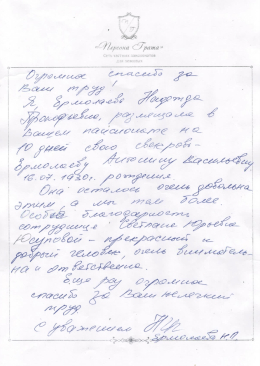 «Персона Грата»
Сеть частных пансионатов
для пожилых
Огромное спасибо за
Ваш труд!
Я, Ермолаева Надежда
размещала в
Вашем пансионате на
10 дней свою свекровь-
Ермолаеву Антонину Васильевну
рождения
Она осталась очень довольна
этим, а мы тем более.
Особая благодарность
сотруднице Светлане Юрьевне
Юсуповой - прекрасный и
добрый человек, очень вниматель-
на и ответственна.
Еще раз огромное
спасибо за Ваш нелегкий
труд
С уважением
Ермолаева Н.П.